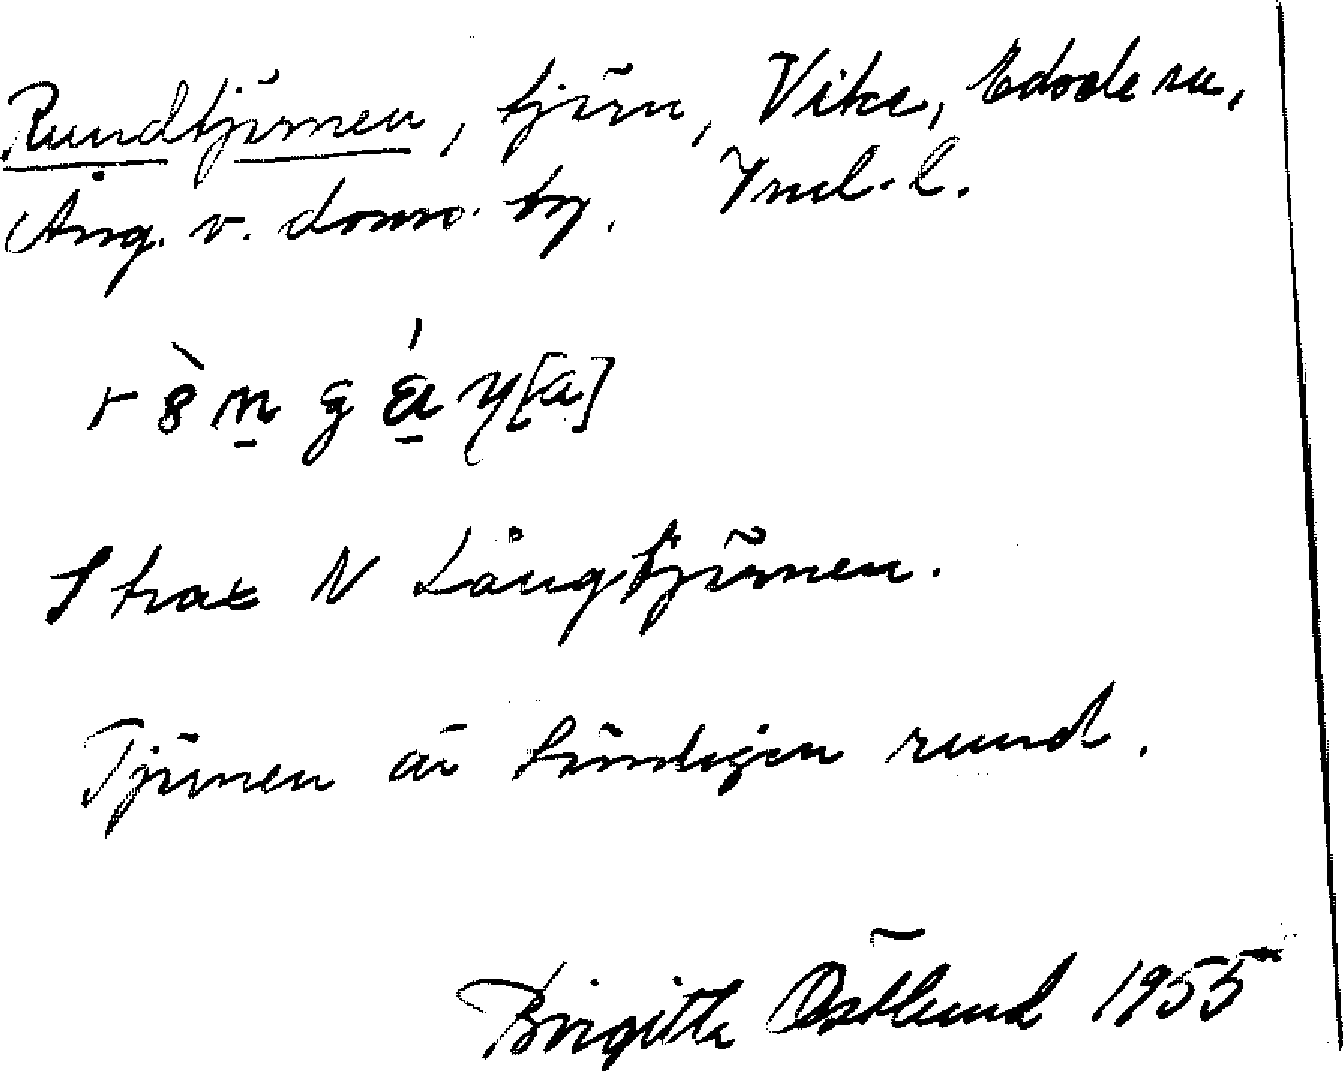 Rundtjärnen, tjärn, Vike, Edsele sn,
Ång. v. doms. by. Ind. l.
Strax N Långtjärnen.
Tjärnen är händigen rund.
Birgitta Östlund 1955